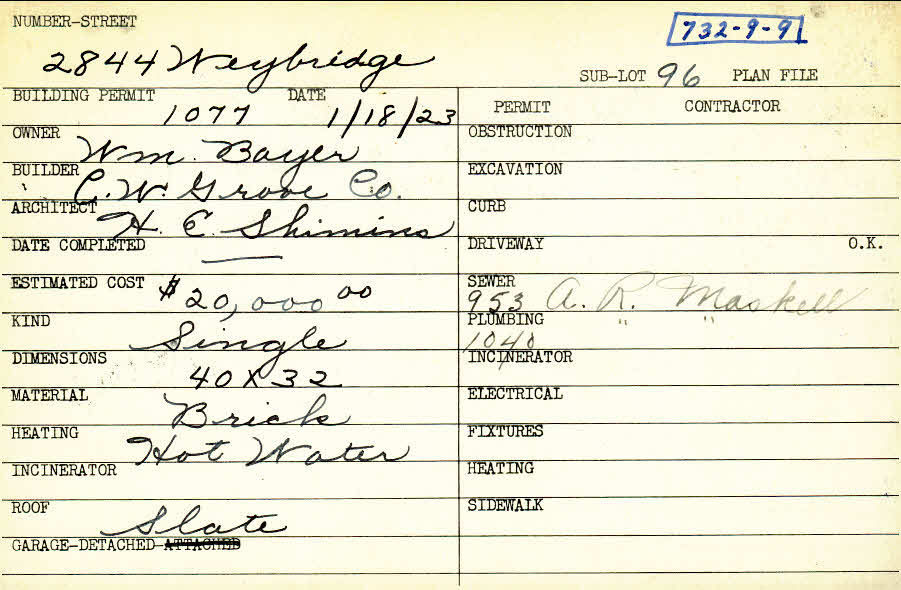 NUMBER-STREET
732-9-9
2844 Weybridge
SUB-LOT 96 PLAN FILE
BUILDING PERMIT 1077 DATE 1/18/23
PERMIT CONTRACTOR
OWNER Wm. Bayer
OBSTRUCTION
BUILDER C. W. Grove Co.
EXCAVATION
ARCHITECT H. E. Shimins
CURB
DATE COMPLETED —
DRIVEWAY O.K.
ESTIMATED COST $20,000 00
SEWER 953 A. R. Maskell
KIND Single
PLUMBING 1040 " "
DIMENSIONS 40 X 32
INCINERATOR
MATERIAL Brick
ELECTRICAL
HEATING Hot Water
FIXTURES
INCINERATOR
HEATING
ROOF Slate
SIDEWALK
GARAGE-DETACHED-ATTACHED